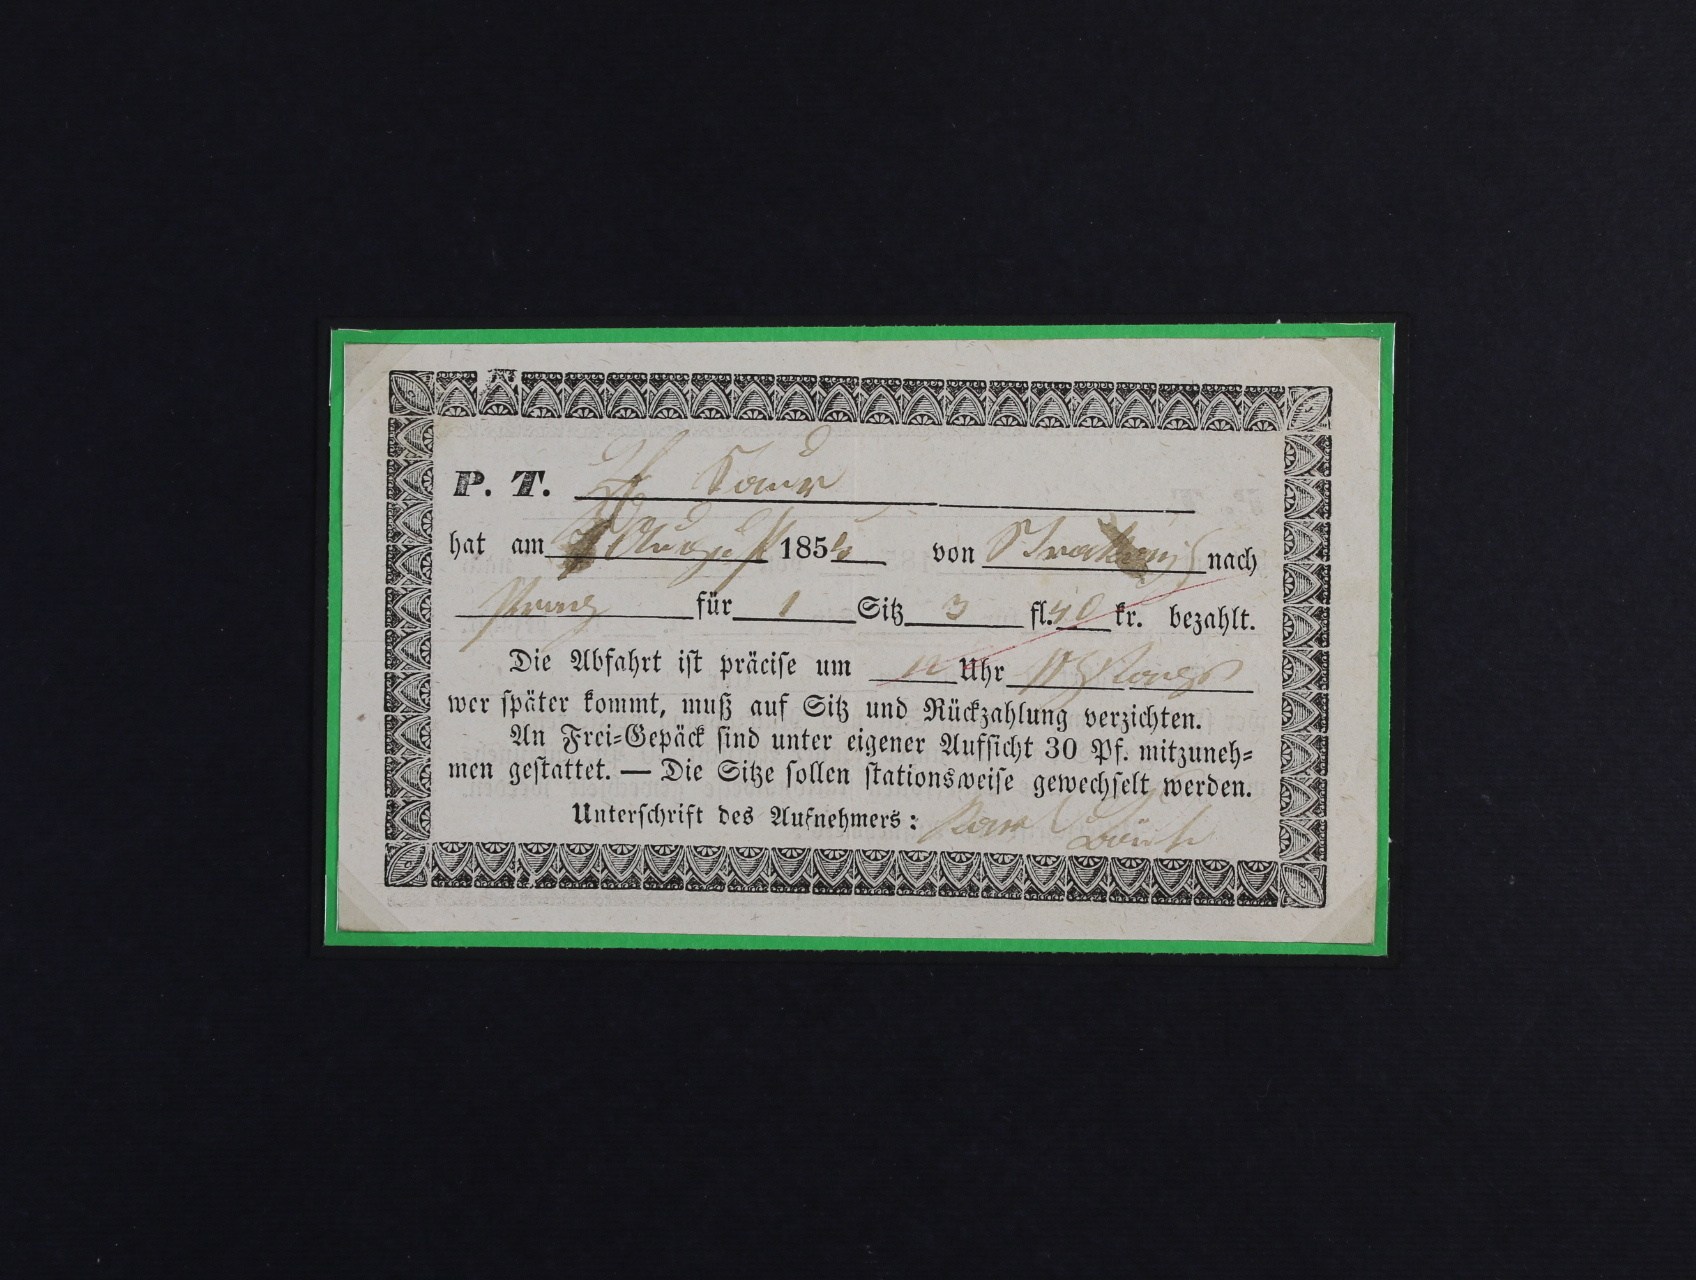 P. T. Saur
hat am August 185 von Strakonitz nach
Prag für 1 Sitz 3 fl. 40 kr. bezahlt.
Die Abfahrt ist präcise um Uhr
wer später kommt, muß auf Sitz und Rückzahlung verzichten.
An Frei-Gepäck sind unter eigener Aufsicht 30 Pf. mitzuneh-
men gestattet. — Die Sitze sollen stationsweise gewechselt werden.
Unterschrift des Aufnehmers: